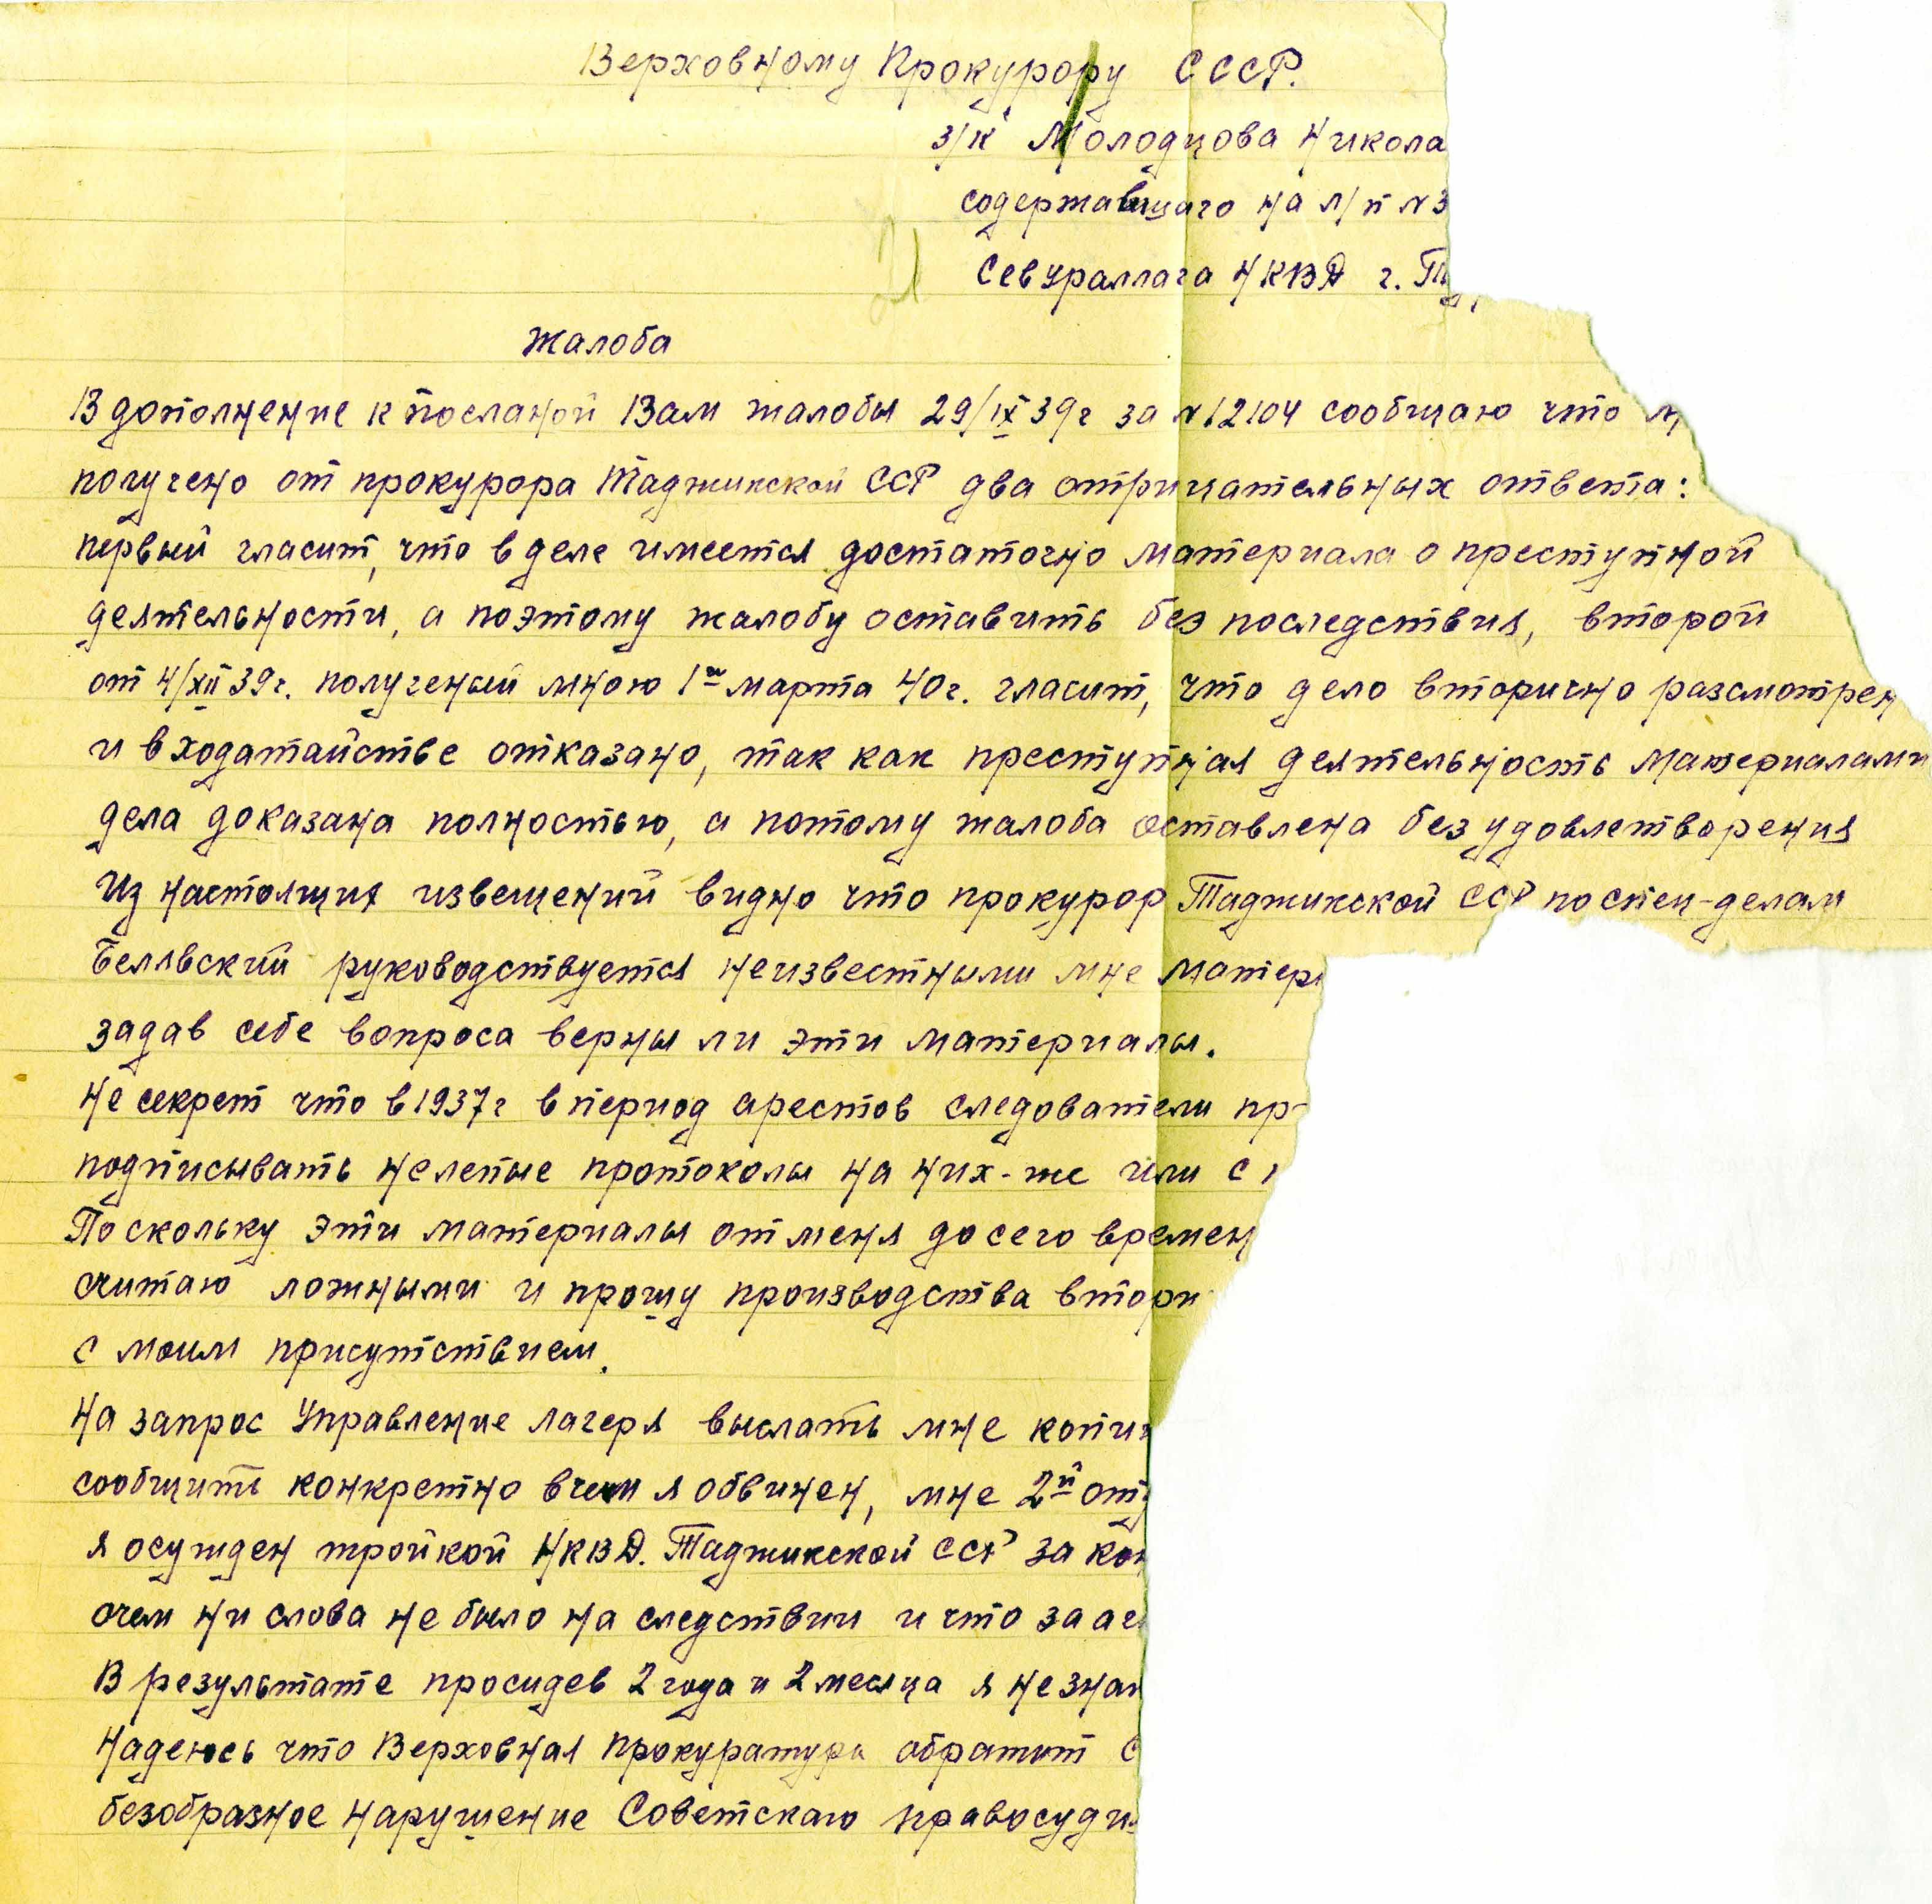 Верховному Прокурору СССР.
з/к Молодцова Никола
содержавщаго на л/п №3
Севураллага НКВД г.
Жалоба
В дополнение к посланой Вам жалобы 29/IX 39г за №12104 сообщаю что
получено от прокурора Таджикской ССР два отрицательных ответа:
первый гласит, что в деле имеется достаточно материала о преступной
деятельности, а поэтому жалобу оставить без последствия, второй
от 4/XII 39г. полученый мною 1го марта 40г. гласит, что дело вторично разсмотрен
и в ходатайстве отказано, так как преступная деятельность материалами
дела доказана полностью, а потому жалоба оставлена без удовлетворения
Из настоящих извещений видно что прокурор Таджикской ССР по спец-делам
Белявский руководствуется неизвестными мне матер
задав себе вопроса верны ли эти материалы.
Не секрет что в 1937г в период арестов следователи пр
подписывать нелепые протоколы на них-же или с
Поскольку эти материалы от меня до сего времен
считаю ложными и прошу производства втори
с моим присутствием.
На запрос Управление лагеря выслать мне копи
сообщить конкретно в чем я обвинен, мне 2й от
я осужден тройкой НКВД. Таджикской ССР за кон
о чем ни слова не было на следствии и что за а
В результате просидев 2 года и 2 месяца я не зна
Надеюсь что Верховная прокуратура обратит с
безобразное нарушение Советскаго правосуди